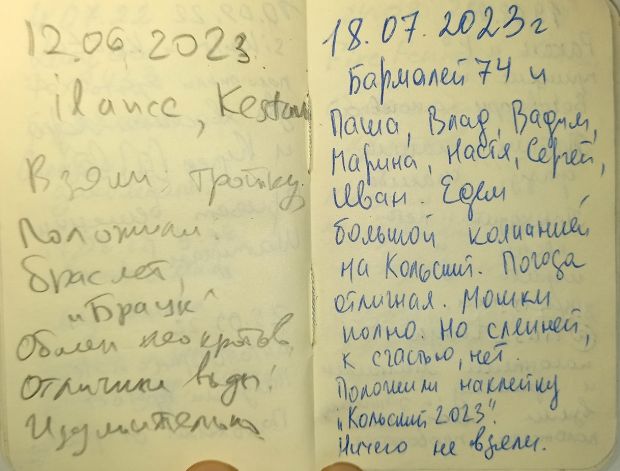 12.06.2023.
ilance,
Взяли: тройку.
Положили:
браслет,
„Брацк“
Обмен
Отличные виды!
Изумительно
18.07.2023г
Бармалей 74 и
Паша, Влад, Вадим,
Марина, Настя, Сергей,
Иван. Едем
большой компанией
на Кольский. Погода
отличная. Мошки
полно. Но слепней,
к счастью, нет.
Положили наклейку
„Кольский 2023".
Ничего не взяли.